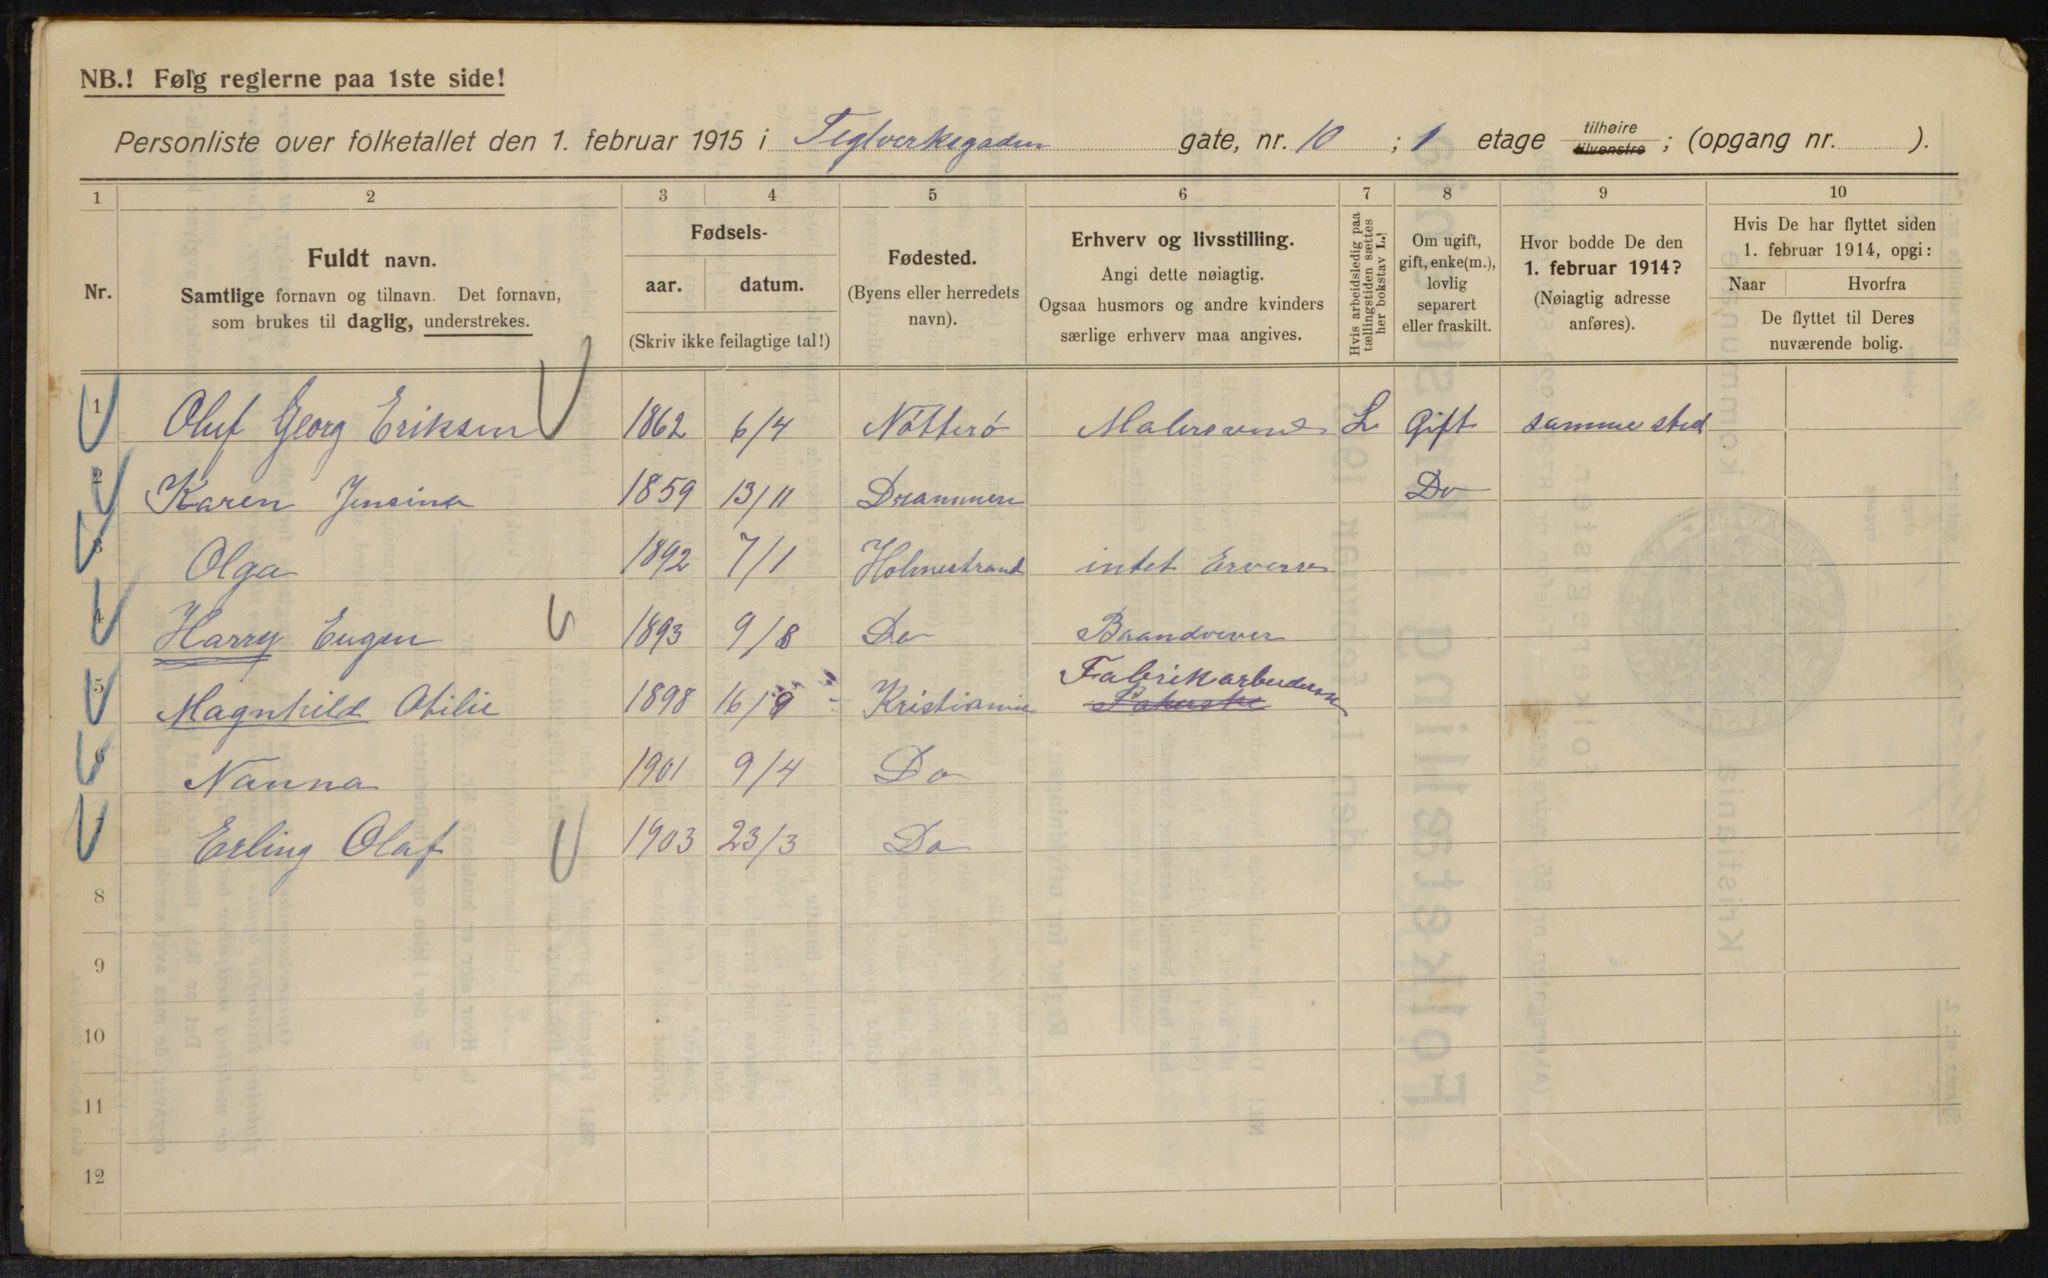 NB.! Følg reglerne paa 1ste side!
Personliste over folketallet den 1. februar 1915 i Teglverksgaden gate, nr. 10 ; 1 etage tilhøire tilvenstre ; (opgang nr. ).
1 2 3 4 5 6 7 8 9 10
Nr.
Fuldt navn.
Samtlige fornavn og tilnavn. Det fornavn,
som brukes til daglig, understrekes.
Fødsels-
aar. datum.
(Skriv ikke feilagtige tal!)
Fødested.
(Byens eller herredets
navn).
Erhverv og livsstilling.
Angi dette nøiagtig.
Ogsaa husmors og andre kvinders
særlige erhverv maa angives.
Hvis arbeidsledig paa
tællingstiden sættes
her bokstav L.
Om ugift,
gift, enke(m.),
lovlig
separert
eller fraskilt.
Hvor bodde De den
1. februar 1914?
(Nøiagtig adresse
anføres).
Hvis De har flyttet siden
1. februar 1914, opgi:
Naar Hvorfra
De flyttet til Deres
nuværende bolig.
1 Oluf Georg Eriksen 1862 6/4 Nötterö L Gift samme sted
2 Karen Jensine 1859 13/11 Drammen Do
3 Olga 1892 7/1 Holmestrand intet Erverv
4 Harry Eugen 1893 9/8 Do Baandvever
5 Magnhild Otilie 1898 16/9 Kristiania Fabrikarbeiderske
6 Nanna 1901 9/4 Do
7 Erling Olaf 1903 23/3 Do
8
9
10
11
12